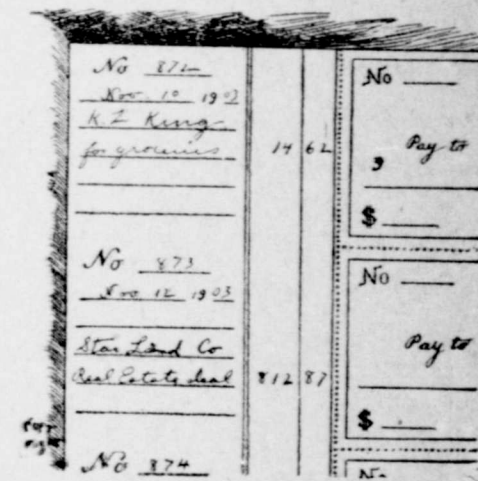 No 872
Nov. 10 1903
K. Z King
for groceries 14 62
No 873
Nov 12 1903
Star Land Co
Real Estate deal 812 87
No 874
No
Pay to
$
No
Pay to
$
No